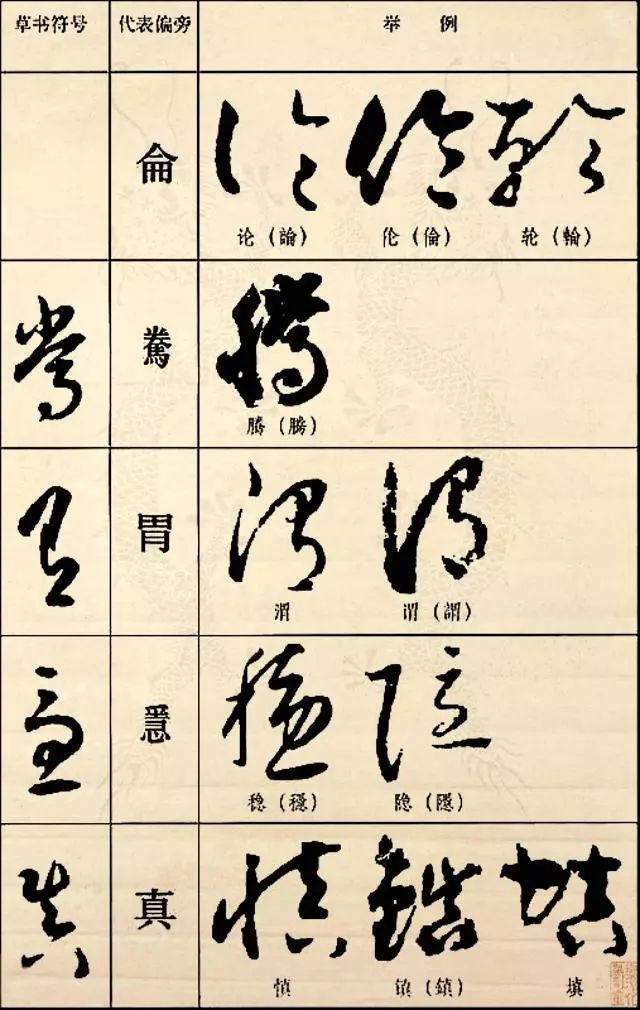 草书符号 代表偏旁 举例
侖
论（論） 伦（倫） 轮（輪）
腾（騰）
胃
渭 谓（謂）
稳（穩） 隐（隱）
真
慎 镇（鎮） 填